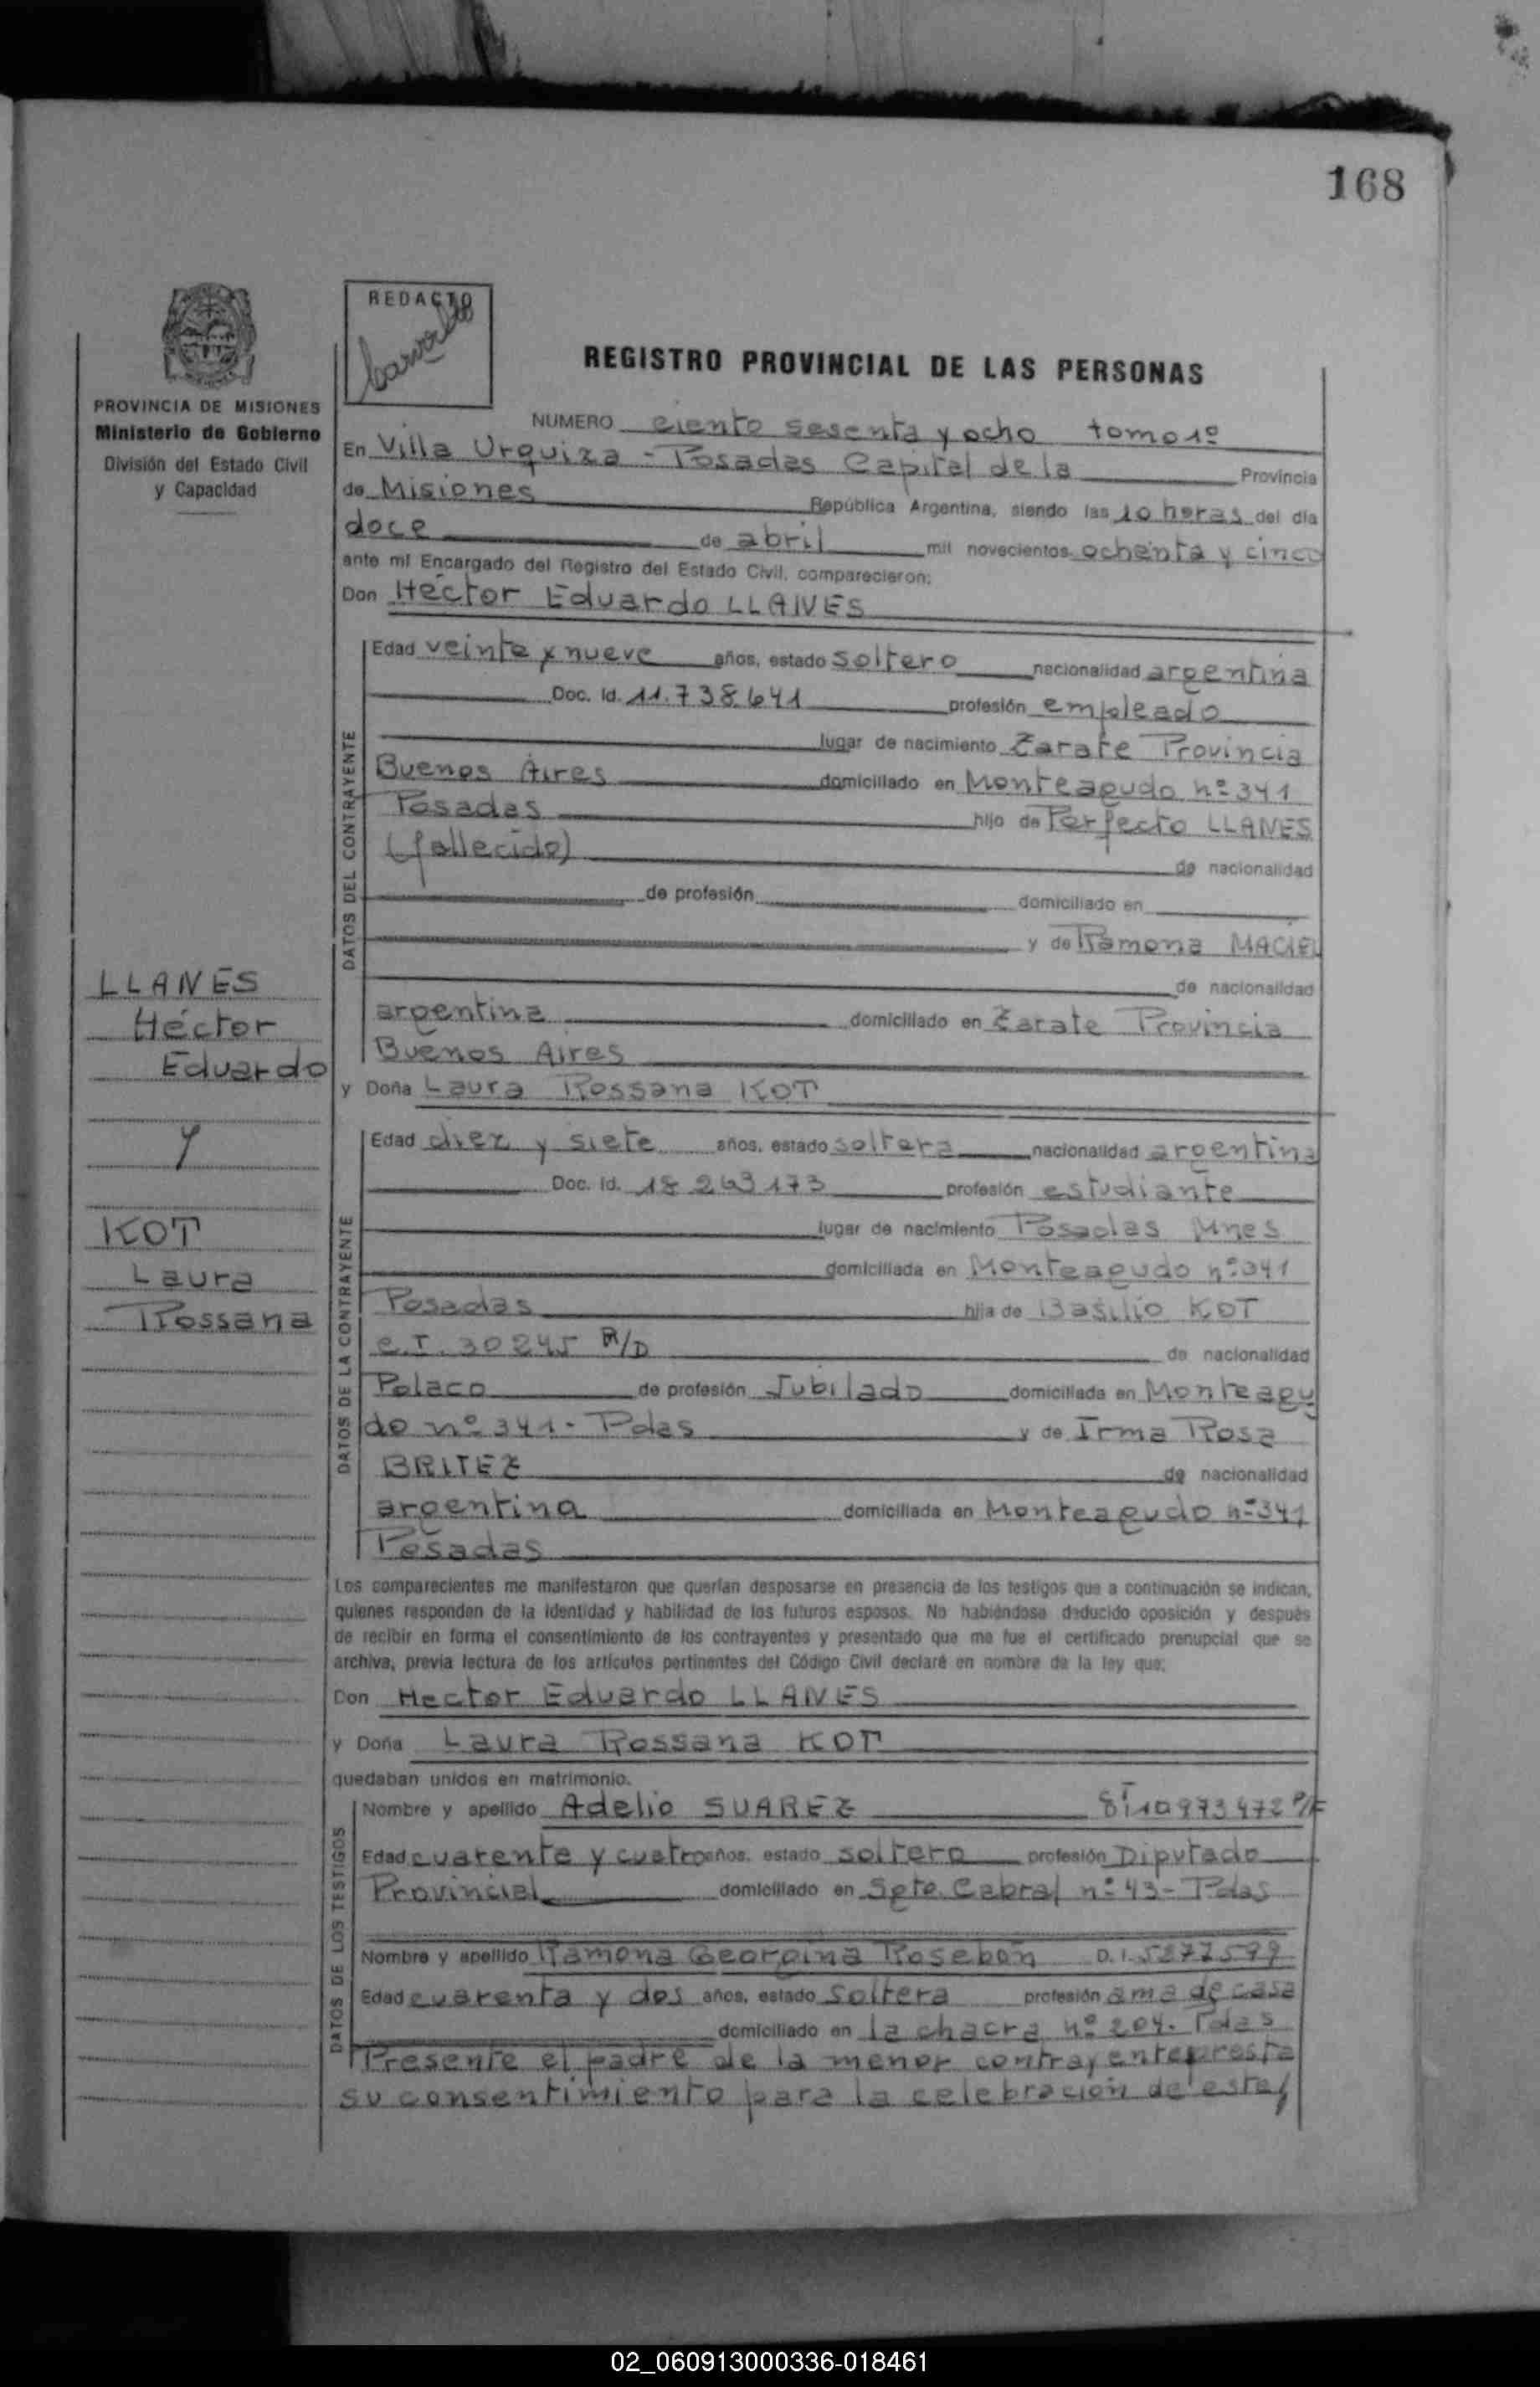 168
REDACTO
REGISTRO PROVINCIAL DE LAS PERSONAS
PROVINCIA DE MISIONES
Ministerio de Gobierno
División del Estado Civil
y Capacidad
NUMERO ciento sesenta y ocho tomo 1º
En Villa Urquiza - Posadas Capital de la Provincia
de Misiones República Argentina, siendo las 10 horas del día
doce de abril mil novecientos ochenta y cinco
ante mí Encargado del Registro del Estado Civil, comparecieron:
Don Héctor Eduardo LLANES
DATOS DEL CONTRAYENTE
Edad veinte y nueve años, estado soltero nacionalidad argentina
Doc. Id. 11.738.641 profesión empleado
lugar de nacimiento Zarate Provincia
Buenos Aires domiciliado en Monteagudo nº 341
Posadas hijo de Perfecto LLANES
(fallecido) de nacionalidad
de profesión domiciliado en
y de Ramona MACIEL
de nacionalidad
argentina domiciliado en Zarate Provincia
Buenos Aires
LLANES
Héctor
Eduardo
y
KOT
Laura
Rossana
y Doña Laura Rossana KOT
DATOS DE LA CONTRAYENTE
Edad diez y siete años, estado soltera nacionalidad argentina
Doc. Id. 18 263173 profesión estudiante
lugar de nacimiento Posadas Mnes
domiciliada en Monteagudo nº 341
Posadas hija de Basilio KOT
C.I. 30245 R/D de nacionalidad
Polaco de profesión Jubilado domiciliada en Monteagu
do nº 341 - Pdas y de Irma Rosa
BRITEZ de nacionalidad
argentina domiciliada en Monteagudo nº 341
Posadas
Los comparecientes me manifestaron que querían desposarse en presencia de los testigos que a continuación se indican,
quienes responden de la identidad y habilidad de los futuros esposos. No habiéndose deducido oposición y después
de recibir en forma el consentimiento de los contrayentes y presentado que me fue el certificado prenupcial que se
archiva, previa lectura de los artículos pertinentes del Código Civil declaré en nombre de la ley que:
Don Hector Eduardo LLANES
y Doña Laura Rossana KOT
quedaban unidos en matrimonio.
DATOS DE LOS TESTIGOS
Nombre y apellido Adelio SUAREZ 10973472 P/F
Edad cuarente y cuatro años, estado soltero profesión Diputado
Provincial domiciliado en Sgto. Cabral nº 43 - Pdas
Nombre y apellido Ramona Georgina Rosebon D.I. 5277597
Edad cuarenta y dos años, estado soltera profesión ama de casa
domiciliado en la chacra nº 204. Pdas
Presente el padre de la menor contrayente presta
su consentimiento para la celebración de este/
02_060913000336-018461